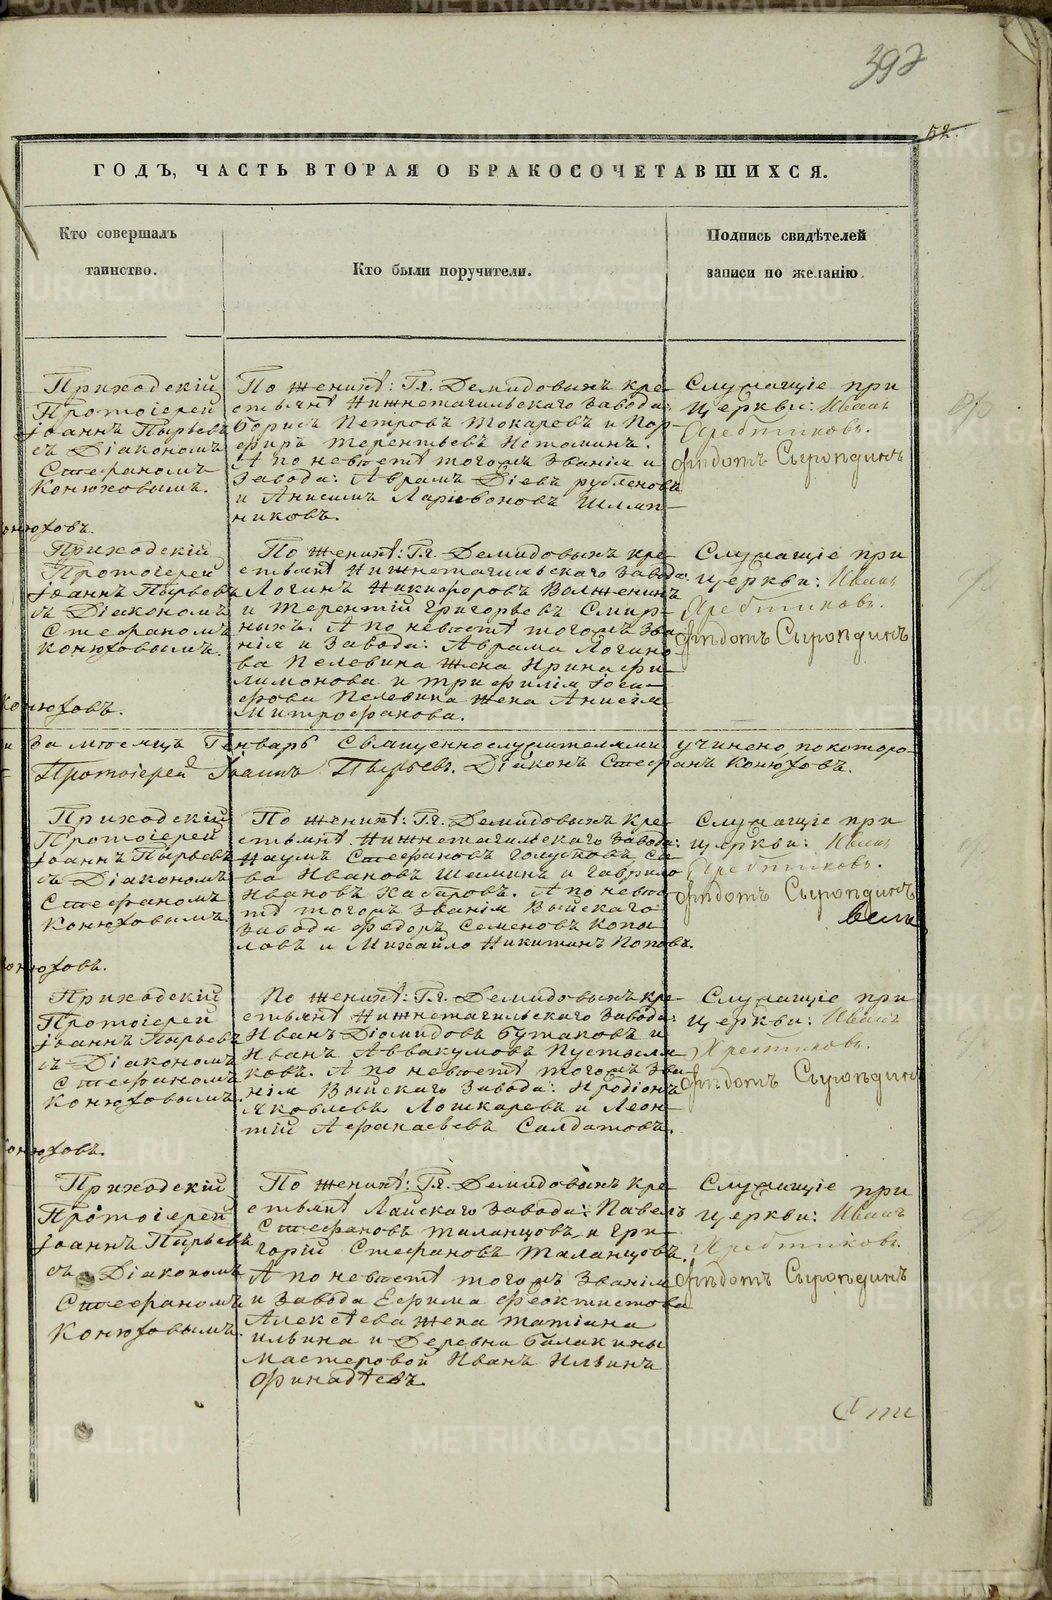 397
52.
ГОДЪ, ЧАСТЬ ВТОРАЯ О БРАКОСОЧЕТАВШИХСЯ.
Кто совершалъ
таинство.
Кто были поручители.
Подпись свидѣтелей
записи по желанію.
Приходскій
Протоіерей
Іоаннъ Пырьевъ
съ Діакономъ
Стефаномъ
Конюховымъ.
По женихѣ: Гг. Демидовыхъ кре-
стьянѣ Нижнетагильскаго завода:
Борисъ Петровъ Токаревъ и Пор-
фиръ Терентьевъ
А по невѣстѣ тогожъ званія и
завода: Аврамъ
и Анисимъ Ларивоновъ Шляп-
никовъ.
Служащіе при
церкви: Иванъ
Хребтиковъ.
Ѳедотъ Сыропдинъ
Конюховъ.
Приходскій
Протоіерей
Іоаннъ Пырьевъ
съ Діакономъ
Стефаномъ
Конюховымъ.
По женихѣ: Гг. Демидовыхъ кре-
стьянѣ Нижнетагильскаго завода:
Логинъ Никифоровъ Волженинъ
и Терентій Григорьевъ Смир-
ныхъ. А по невѣстѣ тогожъ зва-
нія и завода: Аврама Логино-
ва Пелевина жена Ирина Фи-
лимонова и Трифилія Іоси-
фова Пелевина жена Анисія
Митрофанова.
Служащіе при
церкви: Иванъ
Хребтиковъ.
Ѳедотъ Сыропдинъ
Конюховъ.
За мѣсяцъ Генварь священнослужителями учинено, по которо-
Протоіерей Іоаннъ Пырьевъ. Діаконъ Стефанъ Конюховъ.
Приходскій
Протоіерей
Іоаннъ Пырьевъ
съ Діакономъ
Стефаномъ
Конюховымъ.
По женихѣ: Гг. Демидовыхъ кре-
стьянѣ Нижнетагильскаго завода:
Наумъ Стефановъ Голубковъ, Са-
ва Ивановъ Шеминъ и Гаврило
Ивановъ А по невѣс-
тѣ тогожъ званія Выйскаго
завода Федоръ Семеновъ Копы-
ловъ и Михайло Никитинъ Поповъ.
Служащіе при
церкви: Иванъ
Хребтиковъ.
Ѳедотъ Сыропдинъ
Конюховъ.
Приходскій
Протоіерей
Іоаннъ Пырьевъ
съ Діакономъ
Стефаномъ
Конюховымъ.
По женихѣ: Гг. Демидовыхъ кре-
стьянѣ Нижнетагильскаго завода:
Иванъ Діомидовъ Бутаковъ и
Иванъ Аввакумовъ Пустыля-
ковъ. А по невѣстѣ тогожъ зва-
нія Выйскаго завода: Иродіонъ
Яковлевъ Лошкаревъ и Леон-
тій Афанасьевъ Салдатовъ.
Служащіе при
церкви: Иванъ
Хребтиковъ.
Ѳедотъ Сыропдинъ
Конюховъ.
Приходскій
Протоіерей
Іоаннъ Пырьевъ
съ Діакономъ
Стефаномъ
Конюховымъ.
По женихѣ: Гг. Демидовыхъ кре-
стьянѣ Лайскаго завода: Павелъ
Стефановъ Таланцовъ и Гри-
горій Стефановъ Таланцовъ.
А по невѣстѣ тогожъ званія
и завода Ефима Феоктистова
Алексѣева жена Татіана
Ильина и деревни Балакины
Мастеровой Иванъ Ильинъ
Финадѣевъ.
Служащіе при
церкви: Иванъ
Хребтиковъ.
Ѳедотъ Сыропдинъ
METRIKI.GASO-URAL.RU